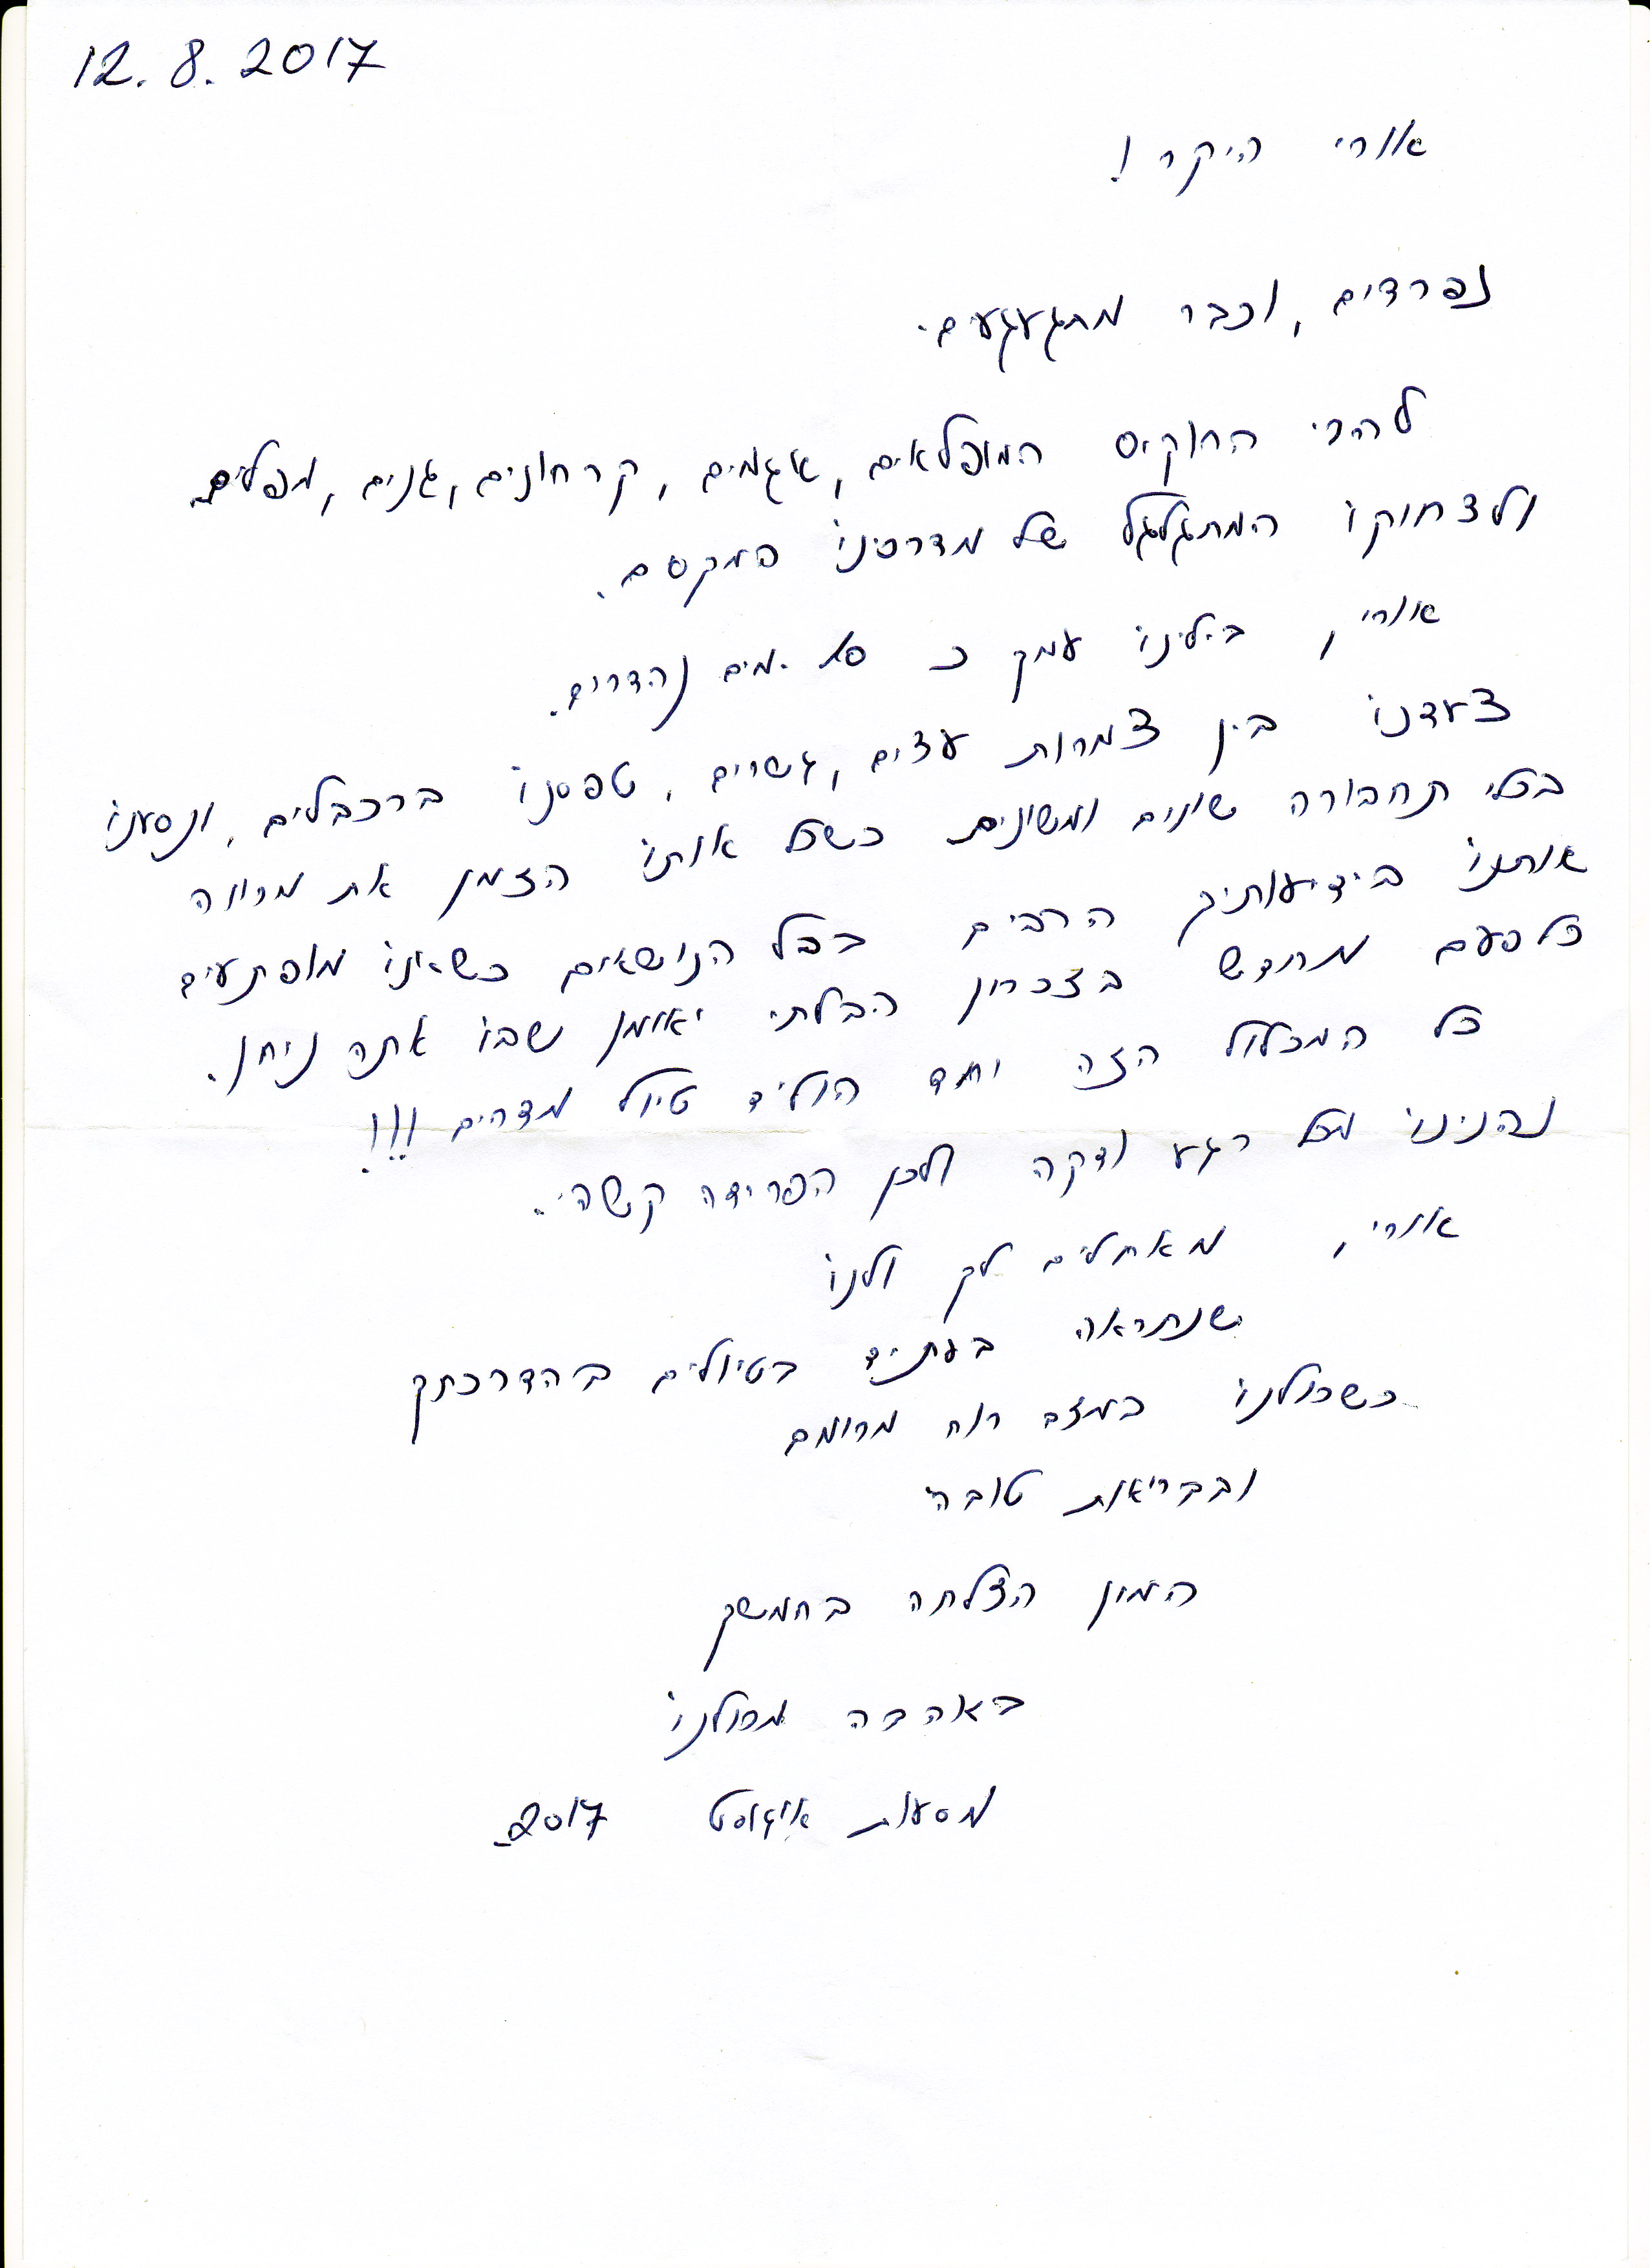 12.8.2017
אורי היקר!
נפרדים, וכבר מתגעגעים.
להרי הרוקיס המופלאים, אגמים, קרחונים, גנים, מפלים
ולצחוקו המתגלגל של מדריכנו המקסים.
אורי, בילינו עמך כ 10 ימים נהדרים.
צעדנו בין צמרות עצים, גשרים, טפסנו ברכבלים, ונסענו
בכלי תחבורה שונים ומשונים כשכל אותו הזמן את מרווה
אותנו בידיעותיך הרבים בכל הנושאים כשאינו מופתעים
כל פעם מחדש בזכרון הבלתי יאומן שבו אתה ניחן.
כל המכלול הזה יחד הוליד טיול מדהים!!!
נהנינו מכל רגע ודקה ולכן הפרידה קשה.
אורי, מאחלים לך ולנו
שנתראה בעתיד בטיולים בהדרכתך
כשכולנו במצב רוח מרומם
ובבריאות טובה
המון הצלחה בהמשך
באהבה מכולנו
מסעות אוגוסט 2017